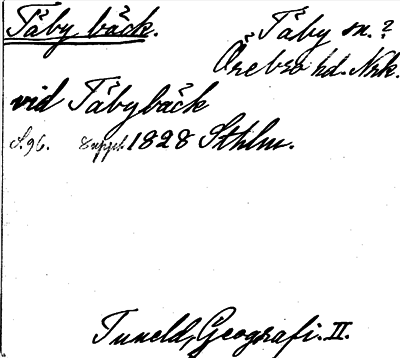 Täby bäck.
Täby sn.?
Örebro hd. Nrk.
vid Täbybäck
S. 96. Suppl. 1828 Sthlm.
Tuneld, Geografi. II.